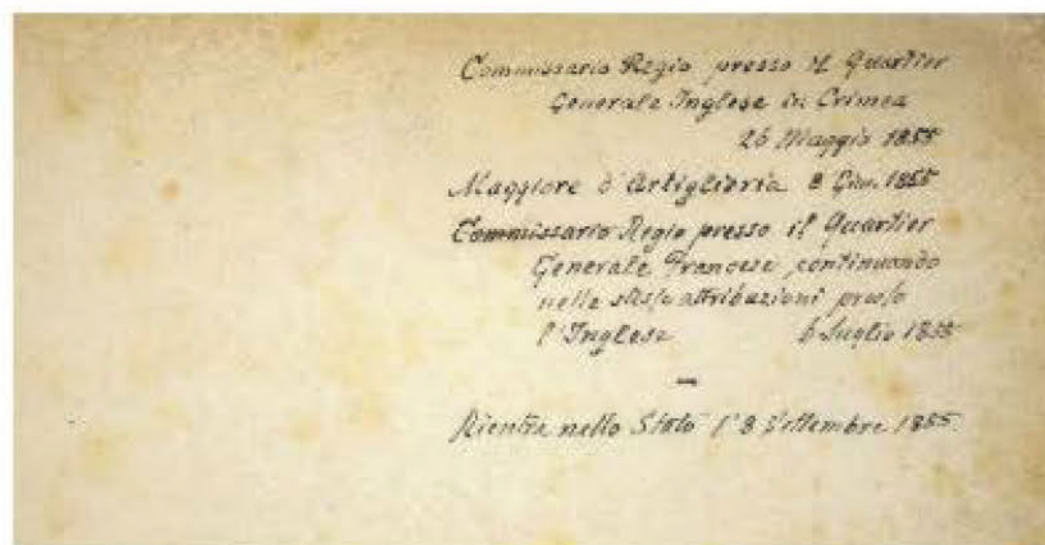 Commissario Regio presso il Quartier
Generale Inglese in Crimea
26 Maggio 1855
Maggiore d'Artiglieria 8 Giu. 1855
Commissario Regio presso il Quartier
Generale Francese, continuando
nelle stesse attribuzioni presso
l'Inglese 6 Luglio 1855
—
Rientra nello Stato l'8 Settembre 1855.